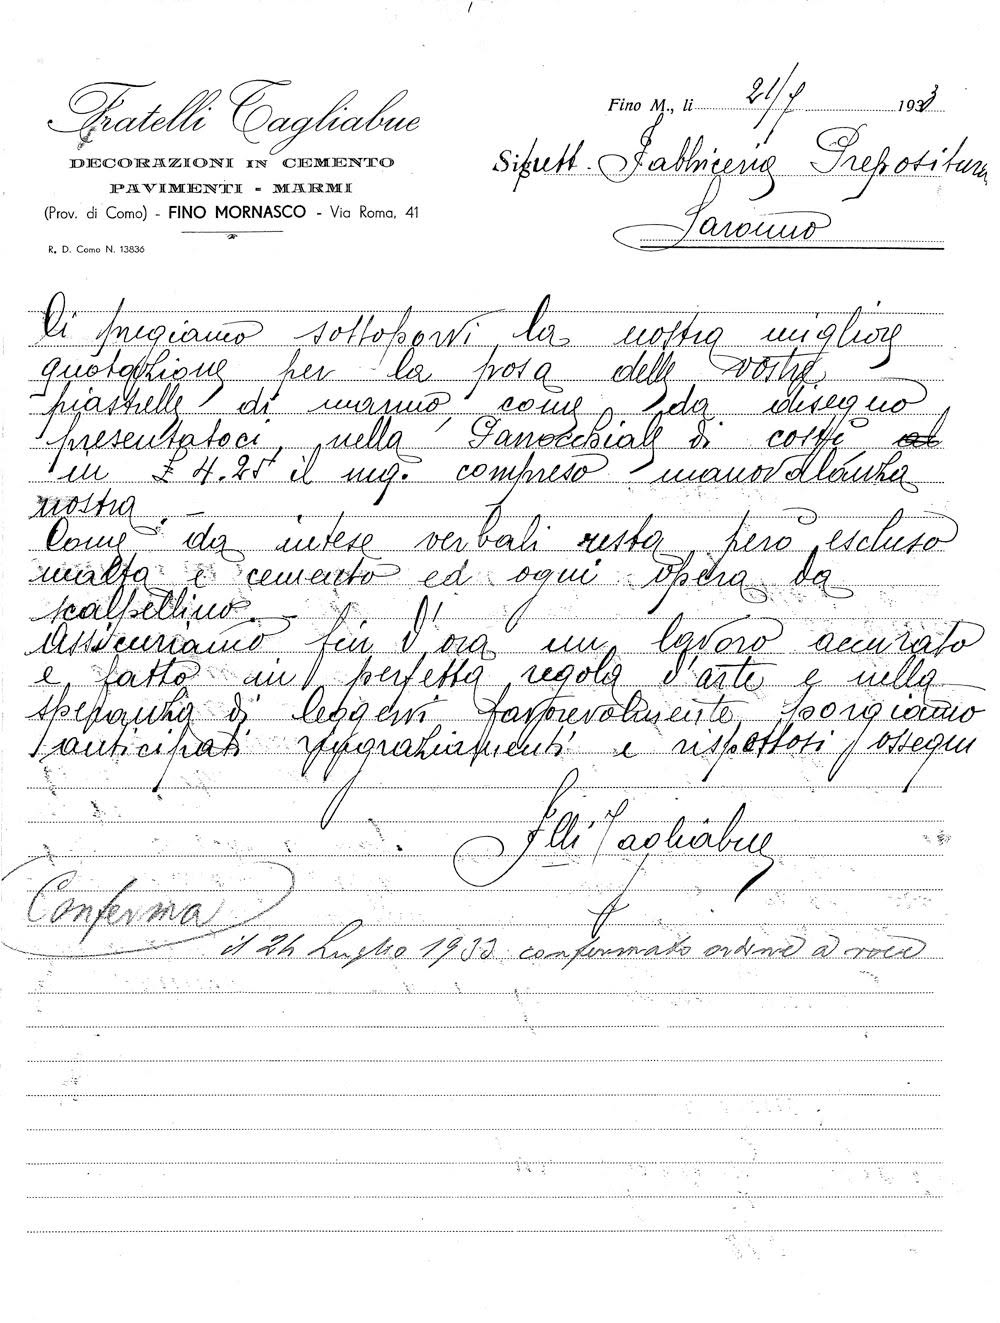 Fratelli Tagliabue
DECORAZIONI IN CEMENTO
PAVIMENTI - MARMI
(Prov. di Como) - FINO MORNASCO - Via Roma, 41
R. D. Como N. 13836
Fino M., li 21/7 1933
Spett. Fabbriceria Prepositura
Saronno
Ci pregiamo sottoporvi la nostra migliore
quotazione per la posa delle vostre
piastrelle di marmo, come da disegno
presentatoci, nella Parrocchiale di costì
in £ 4.25 il mq. compreso manovalanza
nostra. -
Come da intese verbali resta però escluso
malta e cemento ed ogni opera da
scalpellino. -
Assicuriamo fin d'ora un lavoro accurato
e fatto in perfetta regola d'arte e nella
speranza di leggervi favorevolmente, porgiamo
anticipati ringraziamenti e rispettosi ossequi
F.lli Tagliabue
Conferma
il 24 Luglio 1933 confermato ordine a voce